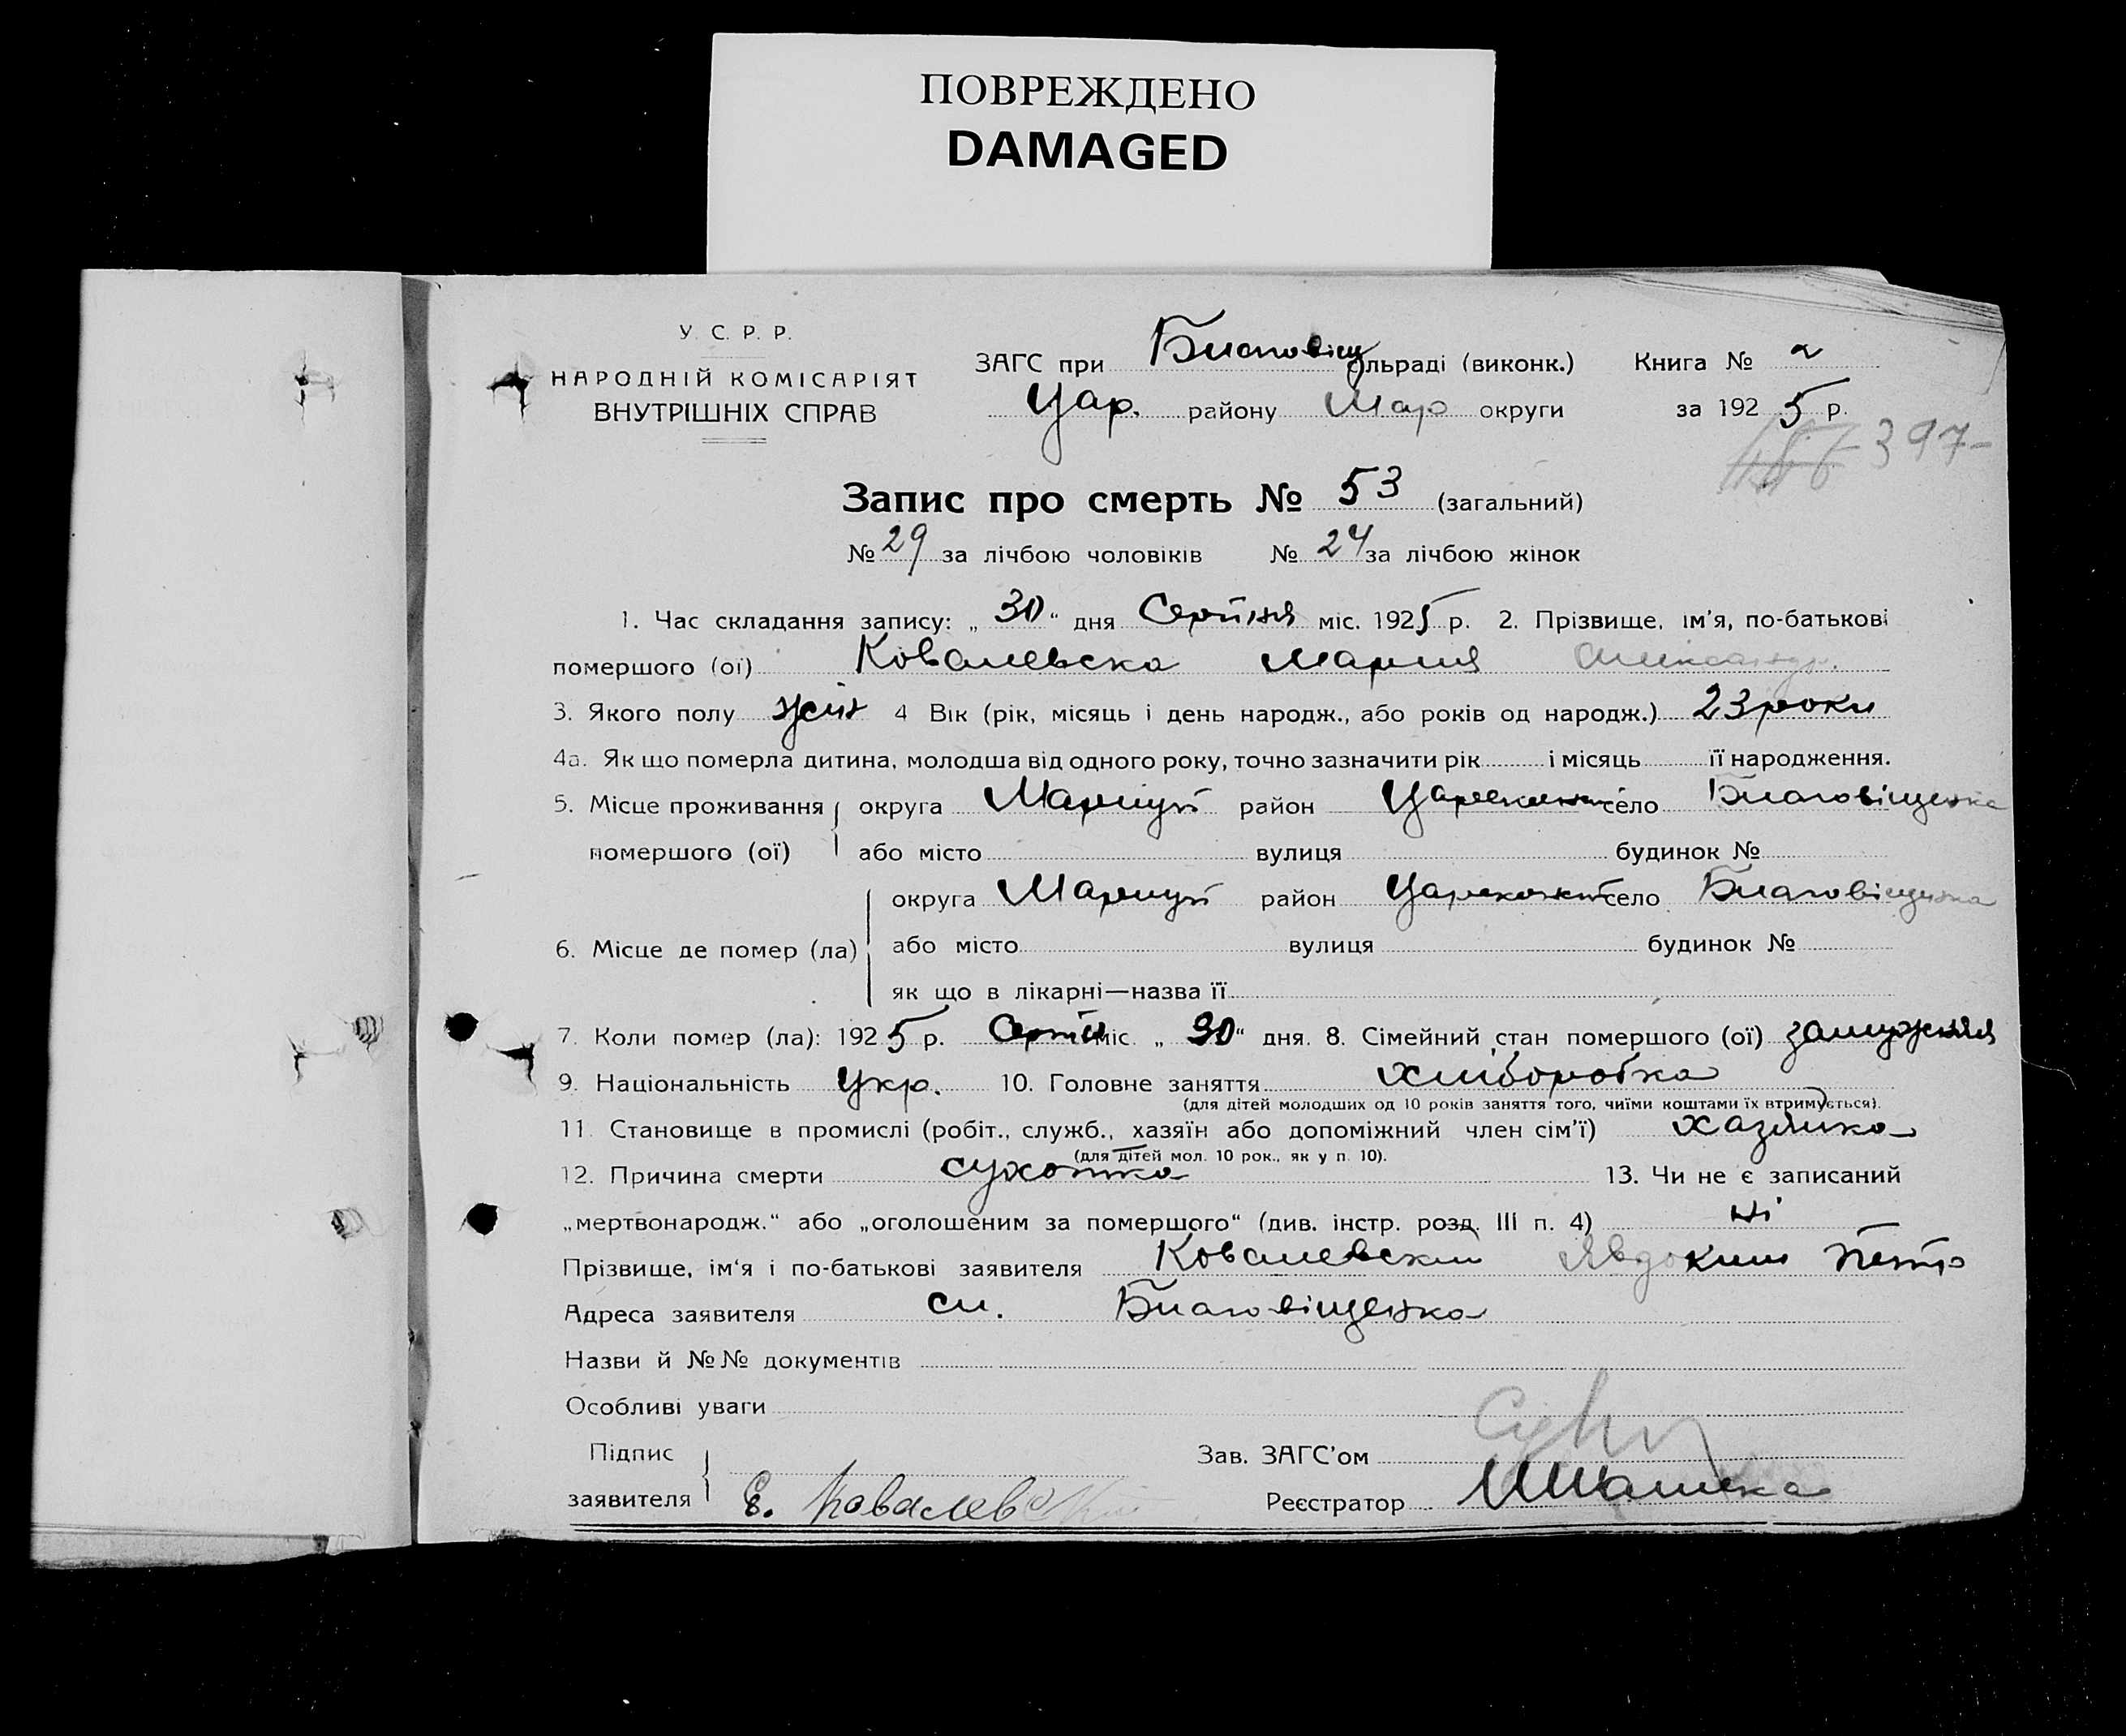 ПОВРЕЖДЕНО
DAMAGED
У. С. Р. Р.
НАРОДНІЙ КОМІСАРІЯТ
ВНУТРІШНІХ СПРАВ
ЗАГС при Благовіщ сільраді (виконк.) Книга № 2
Цар. району Мар округи за 1925 р.
397-
Запис про смерть № 53 (загальний)
№ 29 за лічбою чоловіків № 24 за лічбою жінок
1. Час складання запису: „30“ дня Серпня міс. 1925 р. 2. Прізвище, ім'я, по-батькові
помершого (ої) Ковалевска Мария Александр.
3. Якого полу жін 4 Вік (рік, місяць і день народж., або років од народж.) 23 роки
4а. Як що померла дитина, молодша від одного року, точно зазначити рік і місяць її народження.
5. Місце проживання помершого (ої) округа Мариуп район село Благовіщенка
або місто вулиця будинок №
6. Місце де помер (ла) округа Мариуп район село Благовіщенка
або місто вулиця будинок №
як що в лікарні—назва її
7. Коли помер (ла): 1925 р. Серпня міс. „30“ дня. 8. Сімейний стан помершого (ої) замужняя
9. Національність Укр. 10. Головне заняття хліборобка
(для дітей молодших од 10 років заняття того, чиїми коштами їх втримується).
11. Становище в промислі (робіт., служб., хазяїн або допоміжний член сім'ї) хазяика
(для дітей мол. 10 рок., як у п. 10).
12. Причина смерти сухотка 13. Чи не є записаний
„мертвонародж.“ або „оголошеним за помершого“ (див. інстр. розд. III п. 4) ні
Прізвище, ім'я і по-батькові заявителя Ковалевский Явдоким Петр
Адреса заявителя сл. Благовіщенка
Назви й №№ документів
Особливі уваги
Підпис заявителя Е. Ковалевский
Зав. ЗАГС'ом
Реєстратор